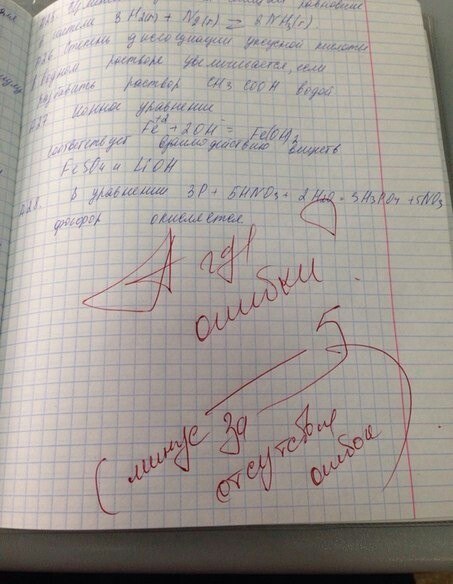 равновесие
в системе 3H2(г) + N2(г) = 2NH3(г).
А26. Степень диссоциации уксусной кислоты
в водном растворе увеличивается, если
разбавить раствор CH3COOH водой
А27 Ионное уравнение
Fe+2 + 2OH- = Fe(OH)2
соответствует взаимодействию веществ
FeSO4 и LiOH
А28. В уравнении 3P + 5HNO3 + 2H2O = 3H3PO4 + 5NO
фосфор окисляется.
А где
ошибки?
5
(минус за
отсутствие
ошибок)